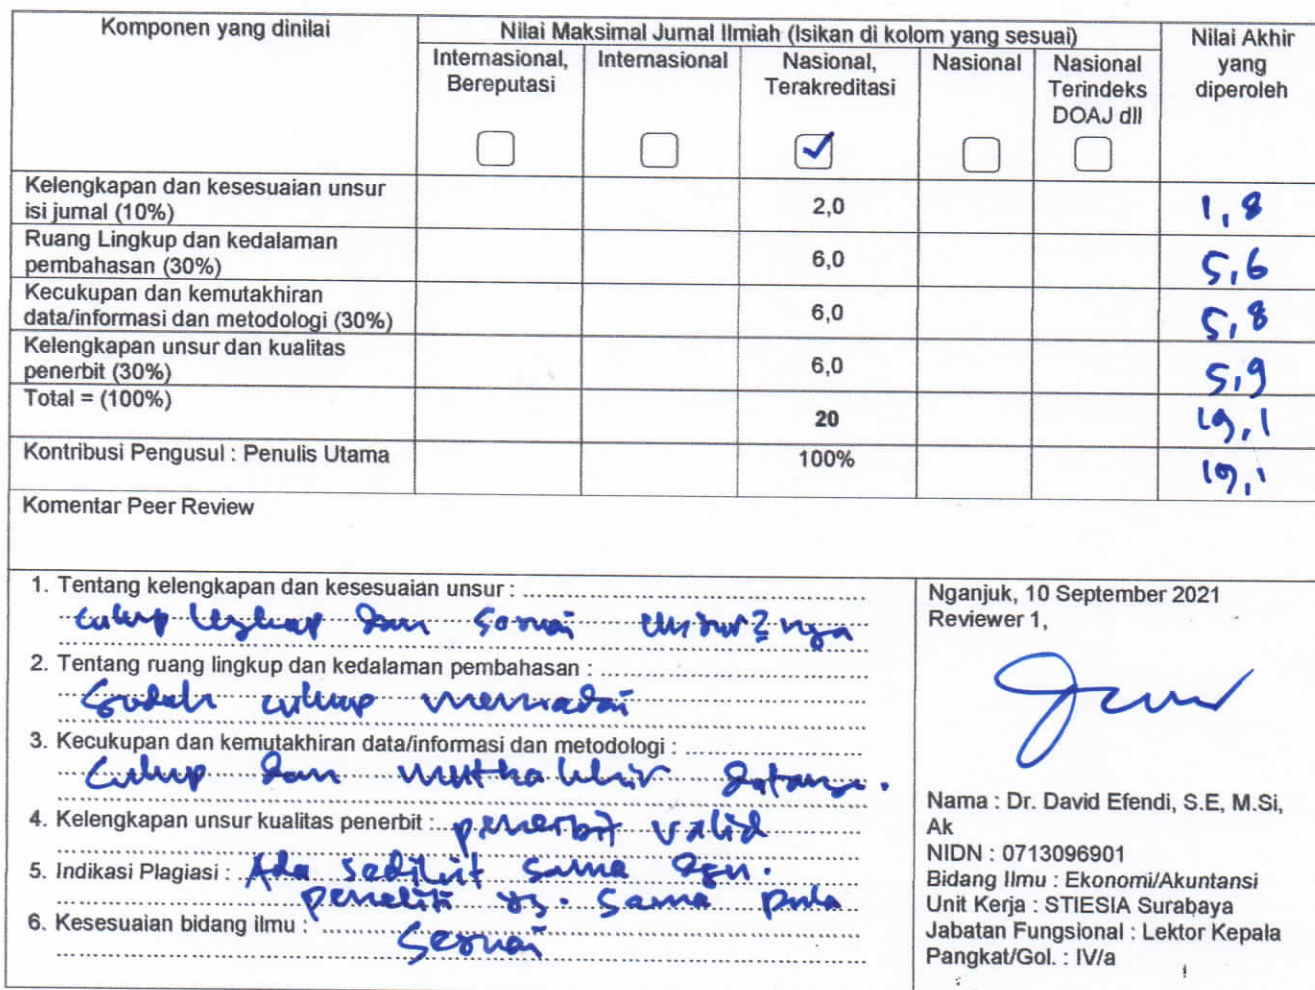 Komponen yang dinilai
Nilai Maksimal Jurnal Ilmiah (Isikan di kolom yang sesuai)
Nilai Akhir
yang
diperoleh
Internasional,
Bereputasi
Internasional
Nasional,
Terakreditasi
Nasional
Nasional
Terindeks
DOAJ dll
Kelengkapan dan kesesuaian unsur
isi jurnal (10%)
2,0
1,8
Ruang Lingkup dan kedalaman
pembahasan (30%)
6,0
5,6
Kecukupan dan kemutakhiran
data/informasi dan metodologi (30%)
6,0
5,8
Kelengkapan unsur dan kualitas
penerbit (30%)
6,0
5,9
Total = (100%)
20
19,1
Kontribusi Pengusul : Penulis Utama
100%
19,1
Komentar Peer Review
1. Tentang kelengkapan dan kesesuaian unsur :
cukup lengkap dan sesuai unsur2nya
2. Tentang ruang lingkup dan kedalaman pembahasan :
Sudah cukup memadai
3. Kecukupan dan kemutakhiran data/informasi dan metodologi :
Cukup dan mutakhir datanya.
4. Kelengkapan unsur kualitas penerbit : penerbit valid
5. Indikasi Plagiasi : Ada sedikit sama dgn.
peneliti yg. sama pula
6. Kesesuaian bidang ilmu :
Sesuai
Nganjuk, 10 September 2021
Reviewer 1,
Nama : Dr. David Efendi, S.E, M.Si,
Ak
NIDN : 0713096901
Bidang Ilmu : Ekonomi/Akuntansi
Unit Kerja : STIESIA Surabaya
Jabatan Fungsional : Lektor Kepala
Pangkat/Gol. : IV/a